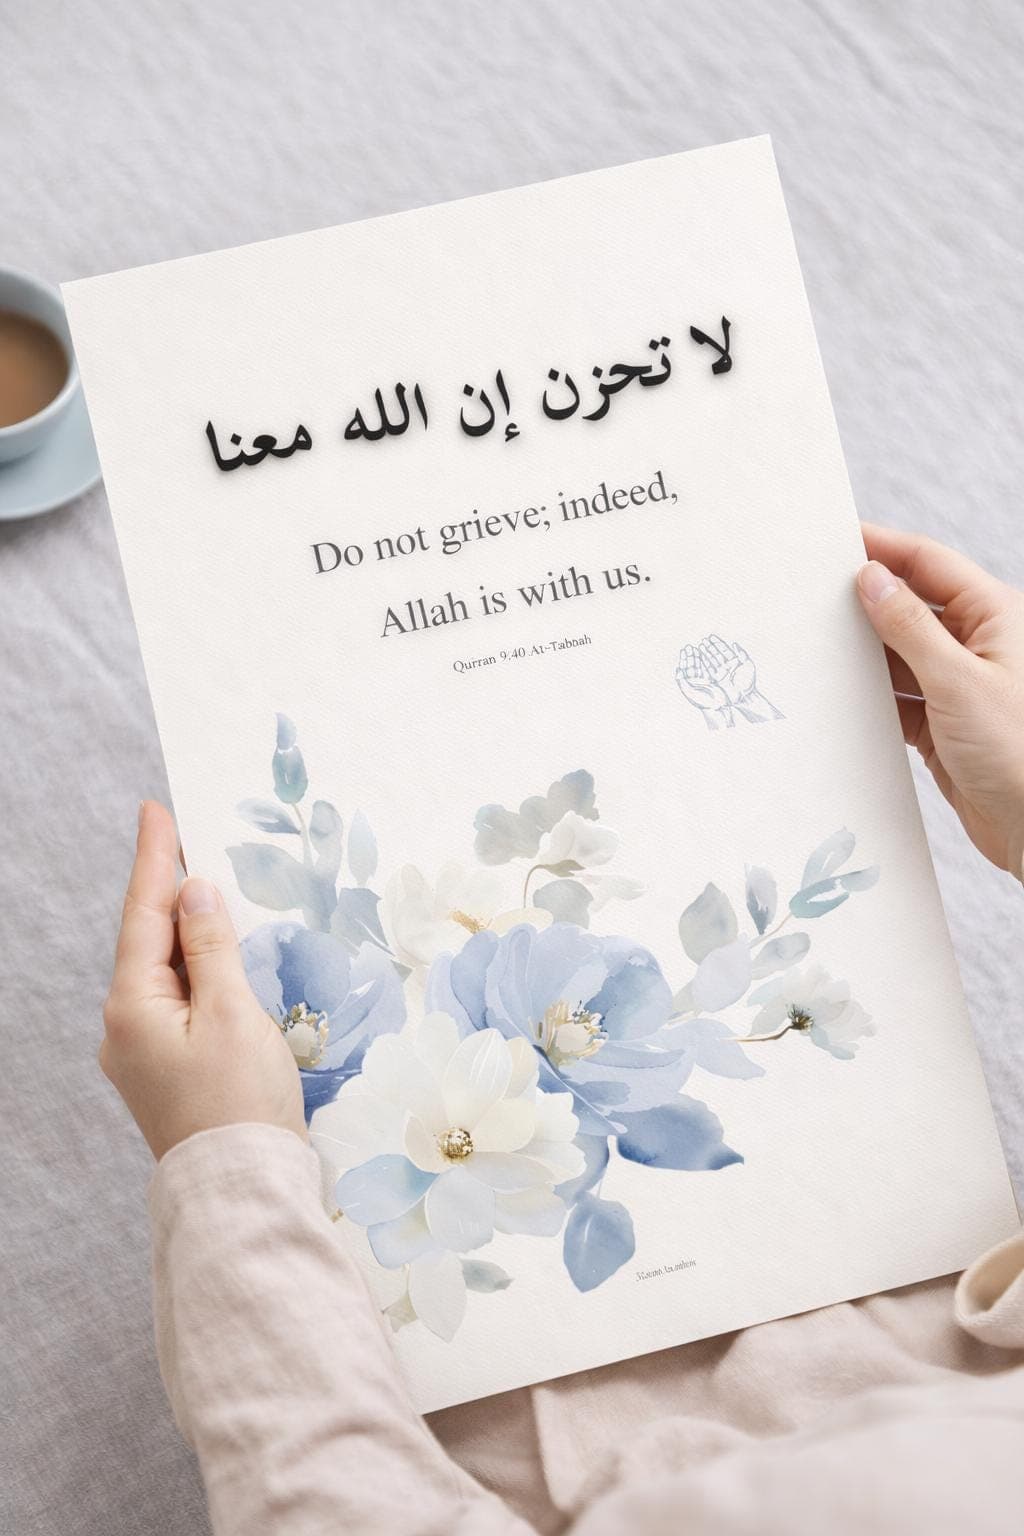 لا تحزن إن الله معنا
Do not grieve; indeed,
Allah is with us.
Qurran 9:40 At-Tabnah